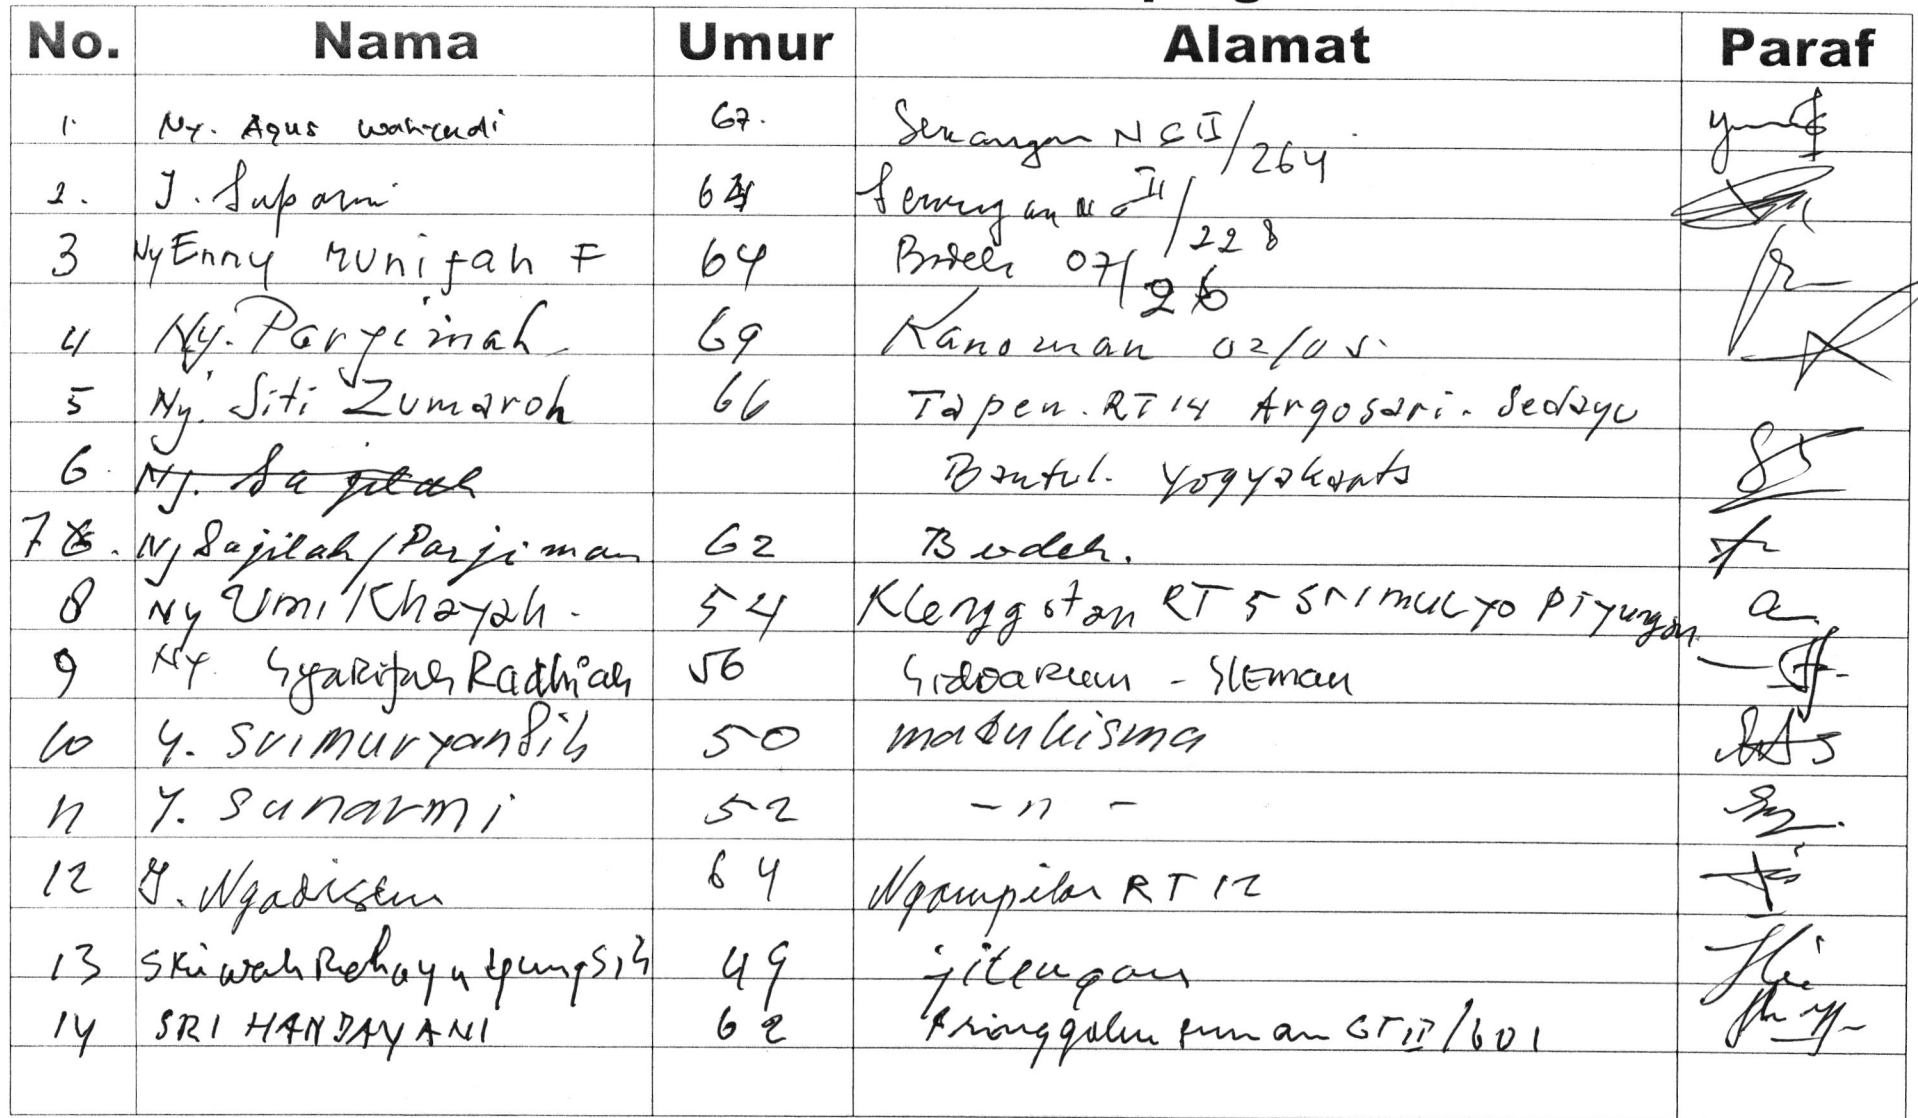 No. Nama Umur Alamat Paraf
1. Ny. Agus Wahyudi 67. NG II/264
2. J. Suparmi 64 NG II/228
3 Ny Enny Munifah F 64 Bodeh 07/26
4 Ny. Pargimah 69 Kanoman 02/05.
5 Ny. Siti Zumaroh 66 Tapen. RT 14 Argosari. Sedayu
6. Ny. Sajilah Bantul. Yogyakarta
7 6. Ny Sajilah/Parjiman 62 Bodeh.
8 Ny Umi Khayah. 54 Klenggotan RT 5 SRIMULYO PIYungan
9 Ny. Syarifah Radhiah 56 Sidoarum - Sleman
10 Y. Srimuryansih 50 madukisma
11 Y. Sunarmi 52 - 11 -
12 Y. Ngadisem 64 Ngampilan RT 12
13 Rahayu 49 jitengan
14 SRI HANDAYANI 62 GT II/601